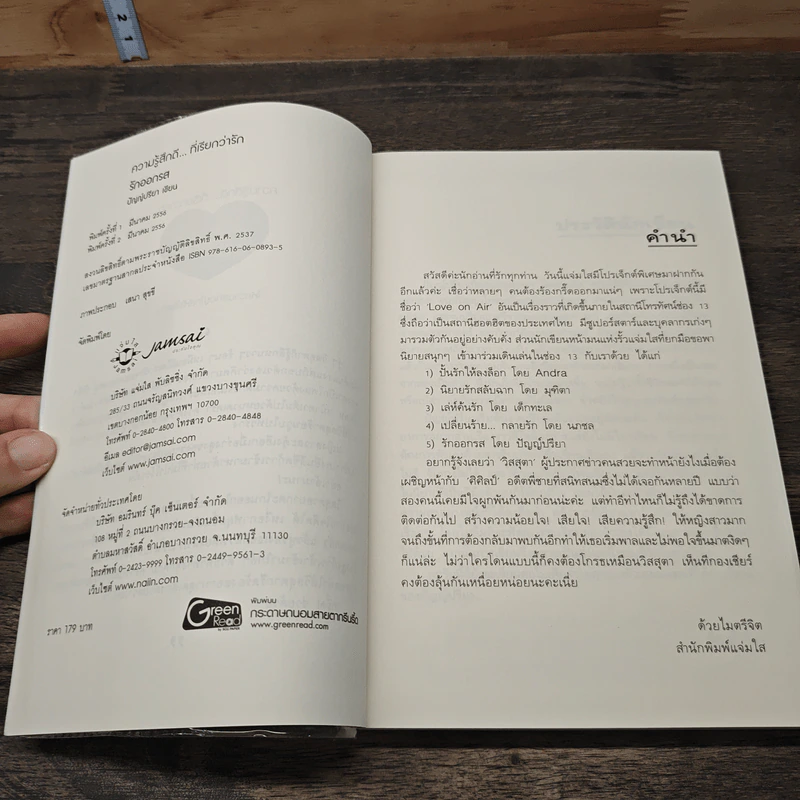 2
1
ความรู้สึกดี... ที่เรียกว่ารัก
รักออกรส
ปัญญ์ปรียา เขียน
พิมพ์ครั้งที่ 1 มีนาคม 2556
พิมพ์ครั้งที่ 2 มีนาคม 2556
สงวนลิขสิทธิ์ตามพระราชบัญญัติลิขสิทธิ์ พ.ศ. 2537
เลขมาตรฐานสากลประจำหนังสือ ISBN 978-616-06-0893-5
ภาพประกอบ เสนา สุขรี
จัดพิมพ์โดย
jamsai
บริษัท แจ่มใส พับลิชชิ่ง จำกัด
285/33 ถนนจรัญสนิทวงศ์ แขวงบางขุนศรี
เขตบางกอกน้อย กรุงเทพฯ 10700
โทรศัพท์ 0-2840-4800 โทรสาร 0-2840-4848
อีเมล editor@jamsai.com
เว็บไซต์ www.jamsai.com
จัดจำหน่ายทั่วประเทศโดย
บริษัท อมรินทร์ บุ๊ค เซ็นเตอร์ จำกัด
108 หมู่ที่ 2 ถนนบางกรวย-จงถนอม
ตำบลมหาสวัสดิ์ อำเภอบางกรวย จ.นนทบุรี 11130
โทรศัพท์ 0-2423-9999 โทรสาร 0-2449-9561-3
เว็บไซต์ www.naiin.com
Green Read
พิมพ์บน
กระดาษถนอมสายตากรีนรี้ด
www.greenread.com
ราคา 179 บาท
คำนำ
สวัสดีค่ะนักอ่านที่รักทุกท่าน วันนี้แจ่มใสมีโปรเจ็กต์พิเศษมาฝากกัน
อีกแล้วค่ะ เชื่อว่าหลายๆ คนต้องร้องกรี๊ดออกมาแน่ๆ เพราะโปรเจ็กต์นี้มี
ชื่อว่า 'Love on Air' อันเป็นเรื่องราวที่เกิดขึ้นภายในสถานีโทรทัศน์ช่อง 13
ซึ่งถือว่าเป็นสถานีฮอตฮิตของประเทศไทย มีซูเปอร์สตาร์และบุคลากรเก่งๆ
มารวมตัวกันอยู่อย่างคับคั่ง ส่วนนักเขียนหน้ามนแห่งรั้วแจ่มใสที่ยกมือขอพา
นิยายสนุกๆ เข้ามาร่วมเดินเล่นในช่อง 13 กับเราด้วย ได้แก่
1) ปั้นรักให้ลงล็อก โดย Andra
2) นิยายรักสลับฉาก โดย มุฑิตา
3) เล่ห์ต้นรัก โดย เด็กทะเล
4) เปลี่ยนร้าย... กลายรัก โดย นภชล
5) รักออกรส โดย ปัญญ์ปรียา
อยากรู้จังเลยว่า 'วิสสุตา' ผู้ประกาศข่าวคนสวยจะทำหน้ายังไงเมื่อต้อง
เผชิญหน้ากับ 'คิศิลป์' อดีตพี่ชายที่สนิทสนมซึ่งไม่ได้เจอกันหลายปี แบบว่า
สองคนนี้เคยมีใจผูกพันกันมาก่อนน่ะค่ะ แต่ทำอีท่าไหนก็ไม่รู้ถึงได้ขาดการ
ติดต่อกันไป สร้างความน้อยใจ! เสียใจ! เสียความรู้สึก! ให้หญิงสาวมาก
จนถึงขั้นที่การต้องกลับมาพบกันอีกทำให้เธอเริ่มพาลและไม่พอใจขึ้นมาตงิดๆ
ก็แน่ล่ะ ไม่ว่าใครโดนแบบนี้ก็คงต้องโกรธเหมือนวิสสุตา เห็นทีกองเชียร์
คงต้องลุ้นกันเหนื่อยหน่อยนะคะเนี่ย
ด้วยไมตรีจิต
สำนักพิมพ์แจ่มใส